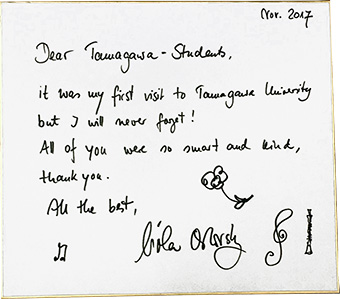 Nov. 2017
Dear Tamagawa-Students,
it was my first visit to Tamagawa University
but I will never forget!
All of you were so smart and kind,
thank you.
All the best,